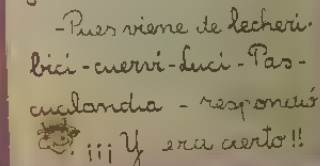 -Pues viene de lecheri-
bici-cuervi-Luci-Pas-
cualandia - respondió
. ¡¡¡Y era cierto!!